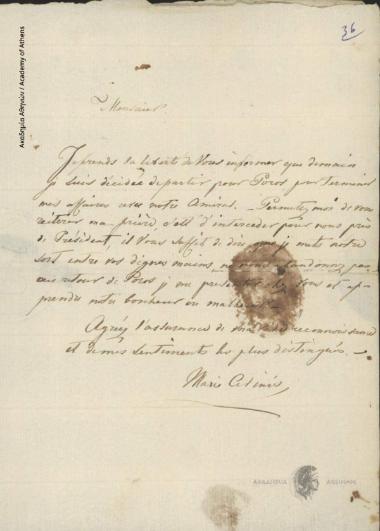 36
Ακαδημία Αθηνών / Academy of Athens
Monsieur
Je prends la liberté de Vous informer que demain
je suis décidée de partir pour Poros pour terminer
mes affaires avec notre Amiral. Permettez moi de vous
réitérer ma prière, c'est d'interceder pour nous près
de Président, il Vous suffit de dire que je mets notre
sort entre vos dignes mains, ne nous abandonnez pas
retour de Poros je me presenter chez Vous et ap-
prendre notre bonheur ou malheur
Agréez l'assurance de ma reconnaissance
et de mes sentiments les plus distingués. —
Marie
ΑΚΑΔΗΜΙΑ ΑΘΗΝΩΝ